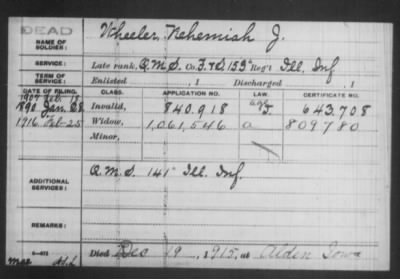 DEAD
NAME OF SOLDIER: Wheeler, Nehemiah J.
SERVICE: Late rank, Q.M.S. Co. F. & S. 153" Reg't Ill. Inf
TERM OF SERVICE: Enlisted , 1 Discharged , 1
DATE OF FILING. CLASS. APPLICATION NO. LAW. CERTIFICATE NO.
1907 Feb. 18
1890 Jan. 28 Invalid, 840.918 643.708
1916 Feb 25 Widow, 1,061,546 a 809780
Minor,
ADDITIONAL SERVICES: Q.M.S. 141" Ill. Inf.
REMARKS:
Died Dec 19, 1915, at Alden Iowa